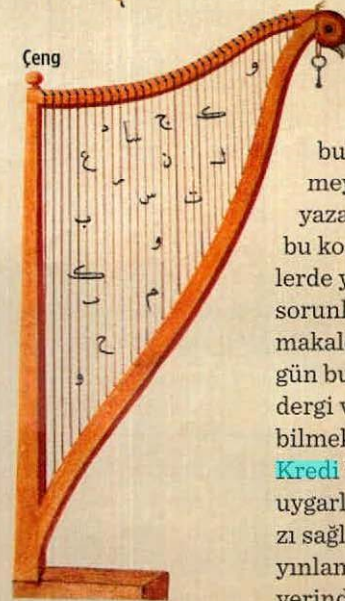 Çeng
و
ج
ع
ب
و
م
ح
و
bu
mey
yaza
bu ko
lerde y
sorunl
makal
gün bu
dergi v
bilmek
Kredi
uygarl
zı sağl
yınlan
yerind